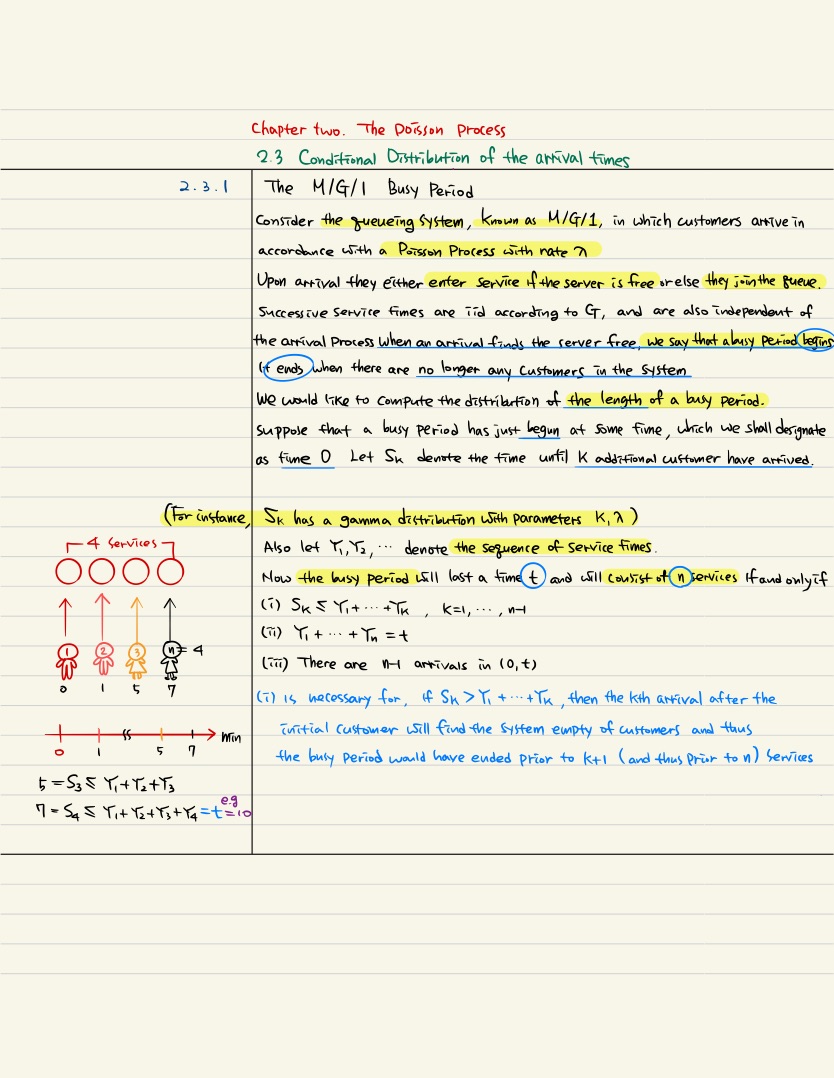 Chapter two. The Poisson Process
2.3 Conditional Distribution of the arrival times
2.3.1 The M/G/1 Busy Period
Consider the queueing system, known as M/G/1, in which customers arrive in
accordance with a Poisson Process with rate λ
Upon arrival they either enter service if the server is free or else they join the queue.
Successive service times are iid according to G, and are also independent of
the arrival Process When an arrival finds the server free, we say that a busy period begins
It ends when there are no longer any customers in the system
We would like to compute the distribution of the length of a busy period.
suppose that a busy period has just begun at some time, which we shall designate
as time 0 Let Sk denote the time until k additional customer have arrived.
(For instance, Sk has a gamma distribution with parameters k, λ)
Also let Y1, Y2, ... denote the sequence of service times.
Now the busy period will last a time t and will consist of n services if and only if
(i) Sk ≤ Y1 + ... + Yk , k=1, ..., n-1
(ii) Y1 + ... + Yn = t
(iii) There are n-1 arrivals in (0, t)
(i) is necessary for, if Sk > Y1 + ... + Yk, then the kth arrival after the
initial customer will find the system empty of customers and thus
the busy period would have ended prior to k+1 (and thus prior to n) services
4 services
1 2 3 n = 4
0 1 5 7
min
0 1 5 7
5 = S3 ≤ Y1 + Y2 + Y3
7 = S4 ≤ Y1 + Y2 + Y3 + Y4 = t e.g = 10